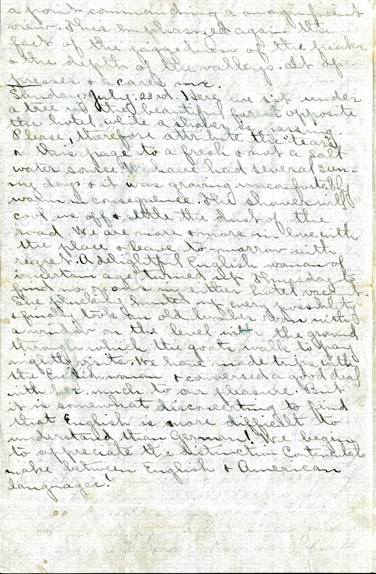 a point commanding a magnificent
view. This emphasized again the
fact of the jagged of the peaks
& the depth of the valleys. It
presses & scares me.
Sunday, July 23rd. Here we sit under
a tree in the beautiful forest opposite
the hotel while a shower is passing.
Please, therefore attribute the "tears"
on this page to a fresh & not a salt
water source. We have had several sun-
ny days & it was growing uncomfortably
warm in consequence. This shower will
cool us off & settle the dust of the
road. We are more & more in love with
the place & leave to-morrow with
regret. A delightful English woman
turned up Thursday to
find no rooms in either hotel vacant.
She pluckily hunted up every possibility
& finally took an old room with
a window on the level with the ground
through which the goats walk to pay
nightly visits. We have made trips with
the Englishwoman & conversed a good deal
with her much to our pleasure. But
it is somewhat disconcerting to find
that English is more difficult to
understand than German! We begin
to appreciate the distinction Continentals
make between English & American
languages!